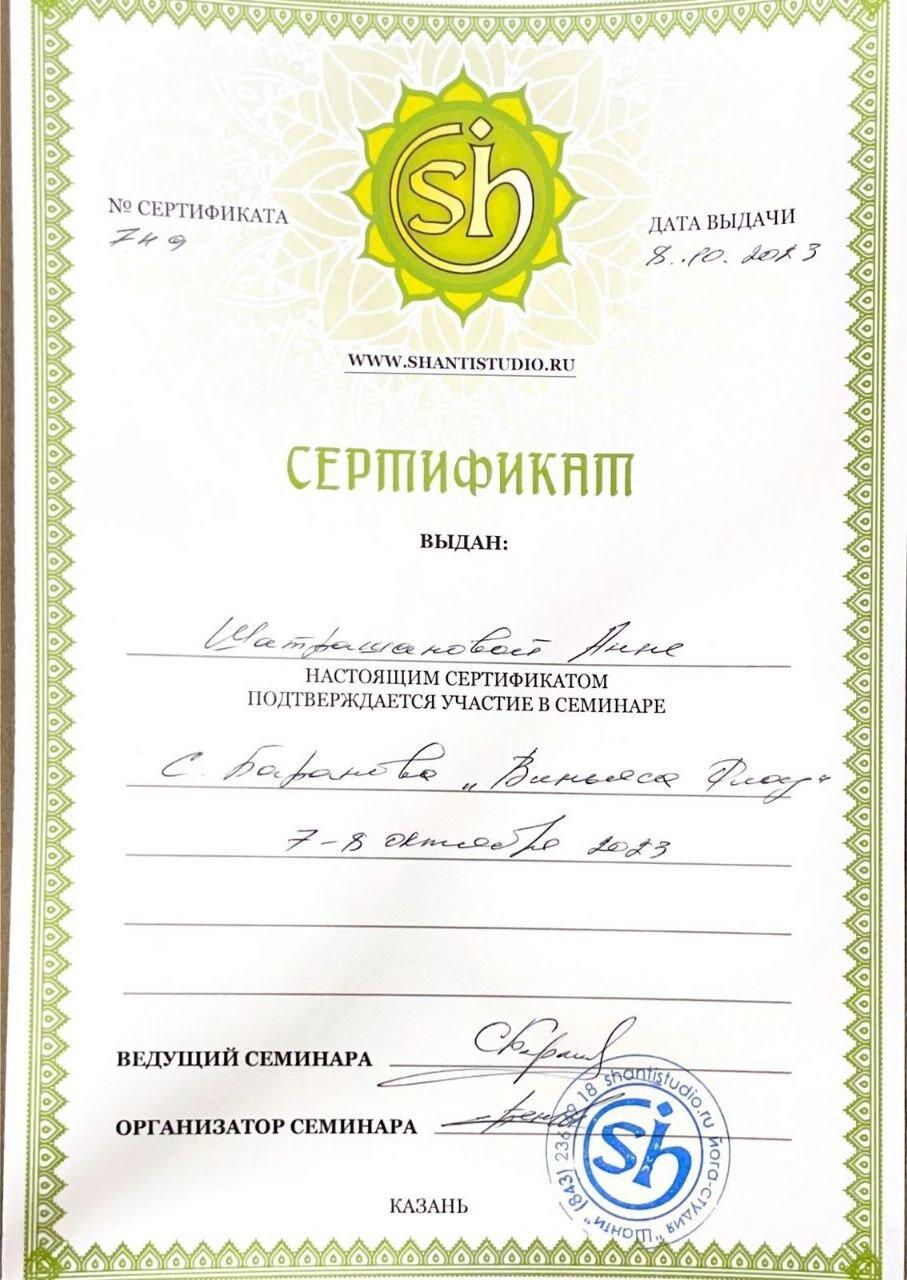 sh
№ СЕРТИФИКАТА
749
ДАТА ВЫДАЧИ
8.10.2023
WWW.SHANTISTUDIO.RU
СЕРТИФИКАТ
ВЫДАН:
Шатрашановой Анне
НАСТОЯЩИМ СЕРТИФИКАТОМ
ПОДТВЕРЖДАЕТСЯ УЧАСТИЕ В СЕМИНАРЕ
С. Баранова „Виньяса Флоу“
7-8 октября 2023
ВЕДУЩИЙ СЕМИНАРА
ОРГАНИЗАТОР СЕМИНАРА
shantistudio.ru йога-студия "Шанти" (843)
sh
КАЗАНЬ